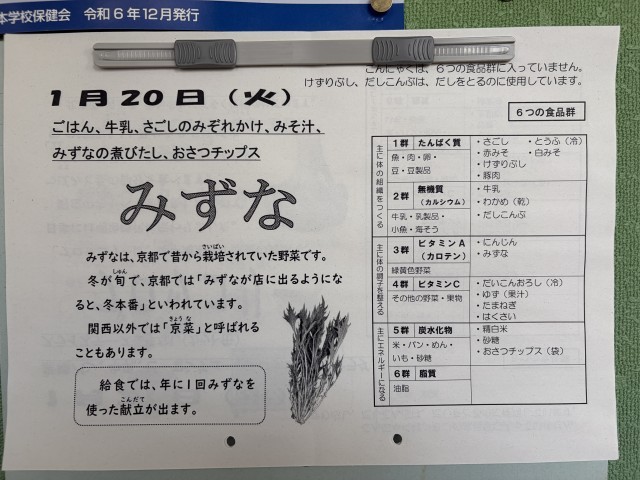 本学校保健会 令和6年12月発行
こんにゃくは、6つの食品群に入っていません。
けずりぶし、だしこんぶは、だしをとるのに使用しています。
1月20日(火)
ごはん、牛乳、さごしのみぞれかけ、みそ汁、
みずなの煮びたし、おさつチップス
みずな
みずなは、京都で昔から栽培されていた野菜です。
さいばい
冬が旬で、京都では「みずなが店に出るようになると、冬本番」といわれています。
しゅん
関西以外では「京菜」と呼ばれる
きょうな
こともあります。
給食では、年に1回みずなを
使った献立が出ます。
こんだて
6つの食品群
主に体の組織をつくる
1群 たんぱく質
魚・肉・卵・
豆・豆製品
・さごし ・とうふ(冷)
・赤みそ ・白みそ
・けずりぶし
・豚肉
2群 無機質
(カルシウム)
牛乳・乳製品・
小魚・海そう
・牛乳
・わかめ(乾)
・だしこんぶ
主に体の調子を整える
3群 ビタミンA
(カロテン)
緑黄色野菜
・にんじん
・みずな
4群 ビタミンC
その他の野菜・果物
・だいこんおろし(冷)
・ゆず(果汁)
・たまねぎ
・はくさい
主にエネルギーになる
5群 炭水化物
米・パン・めん・
いも・砂糖
・精白米
・砂糖
・おさつチップス(袋)
6群 脂質
油脂